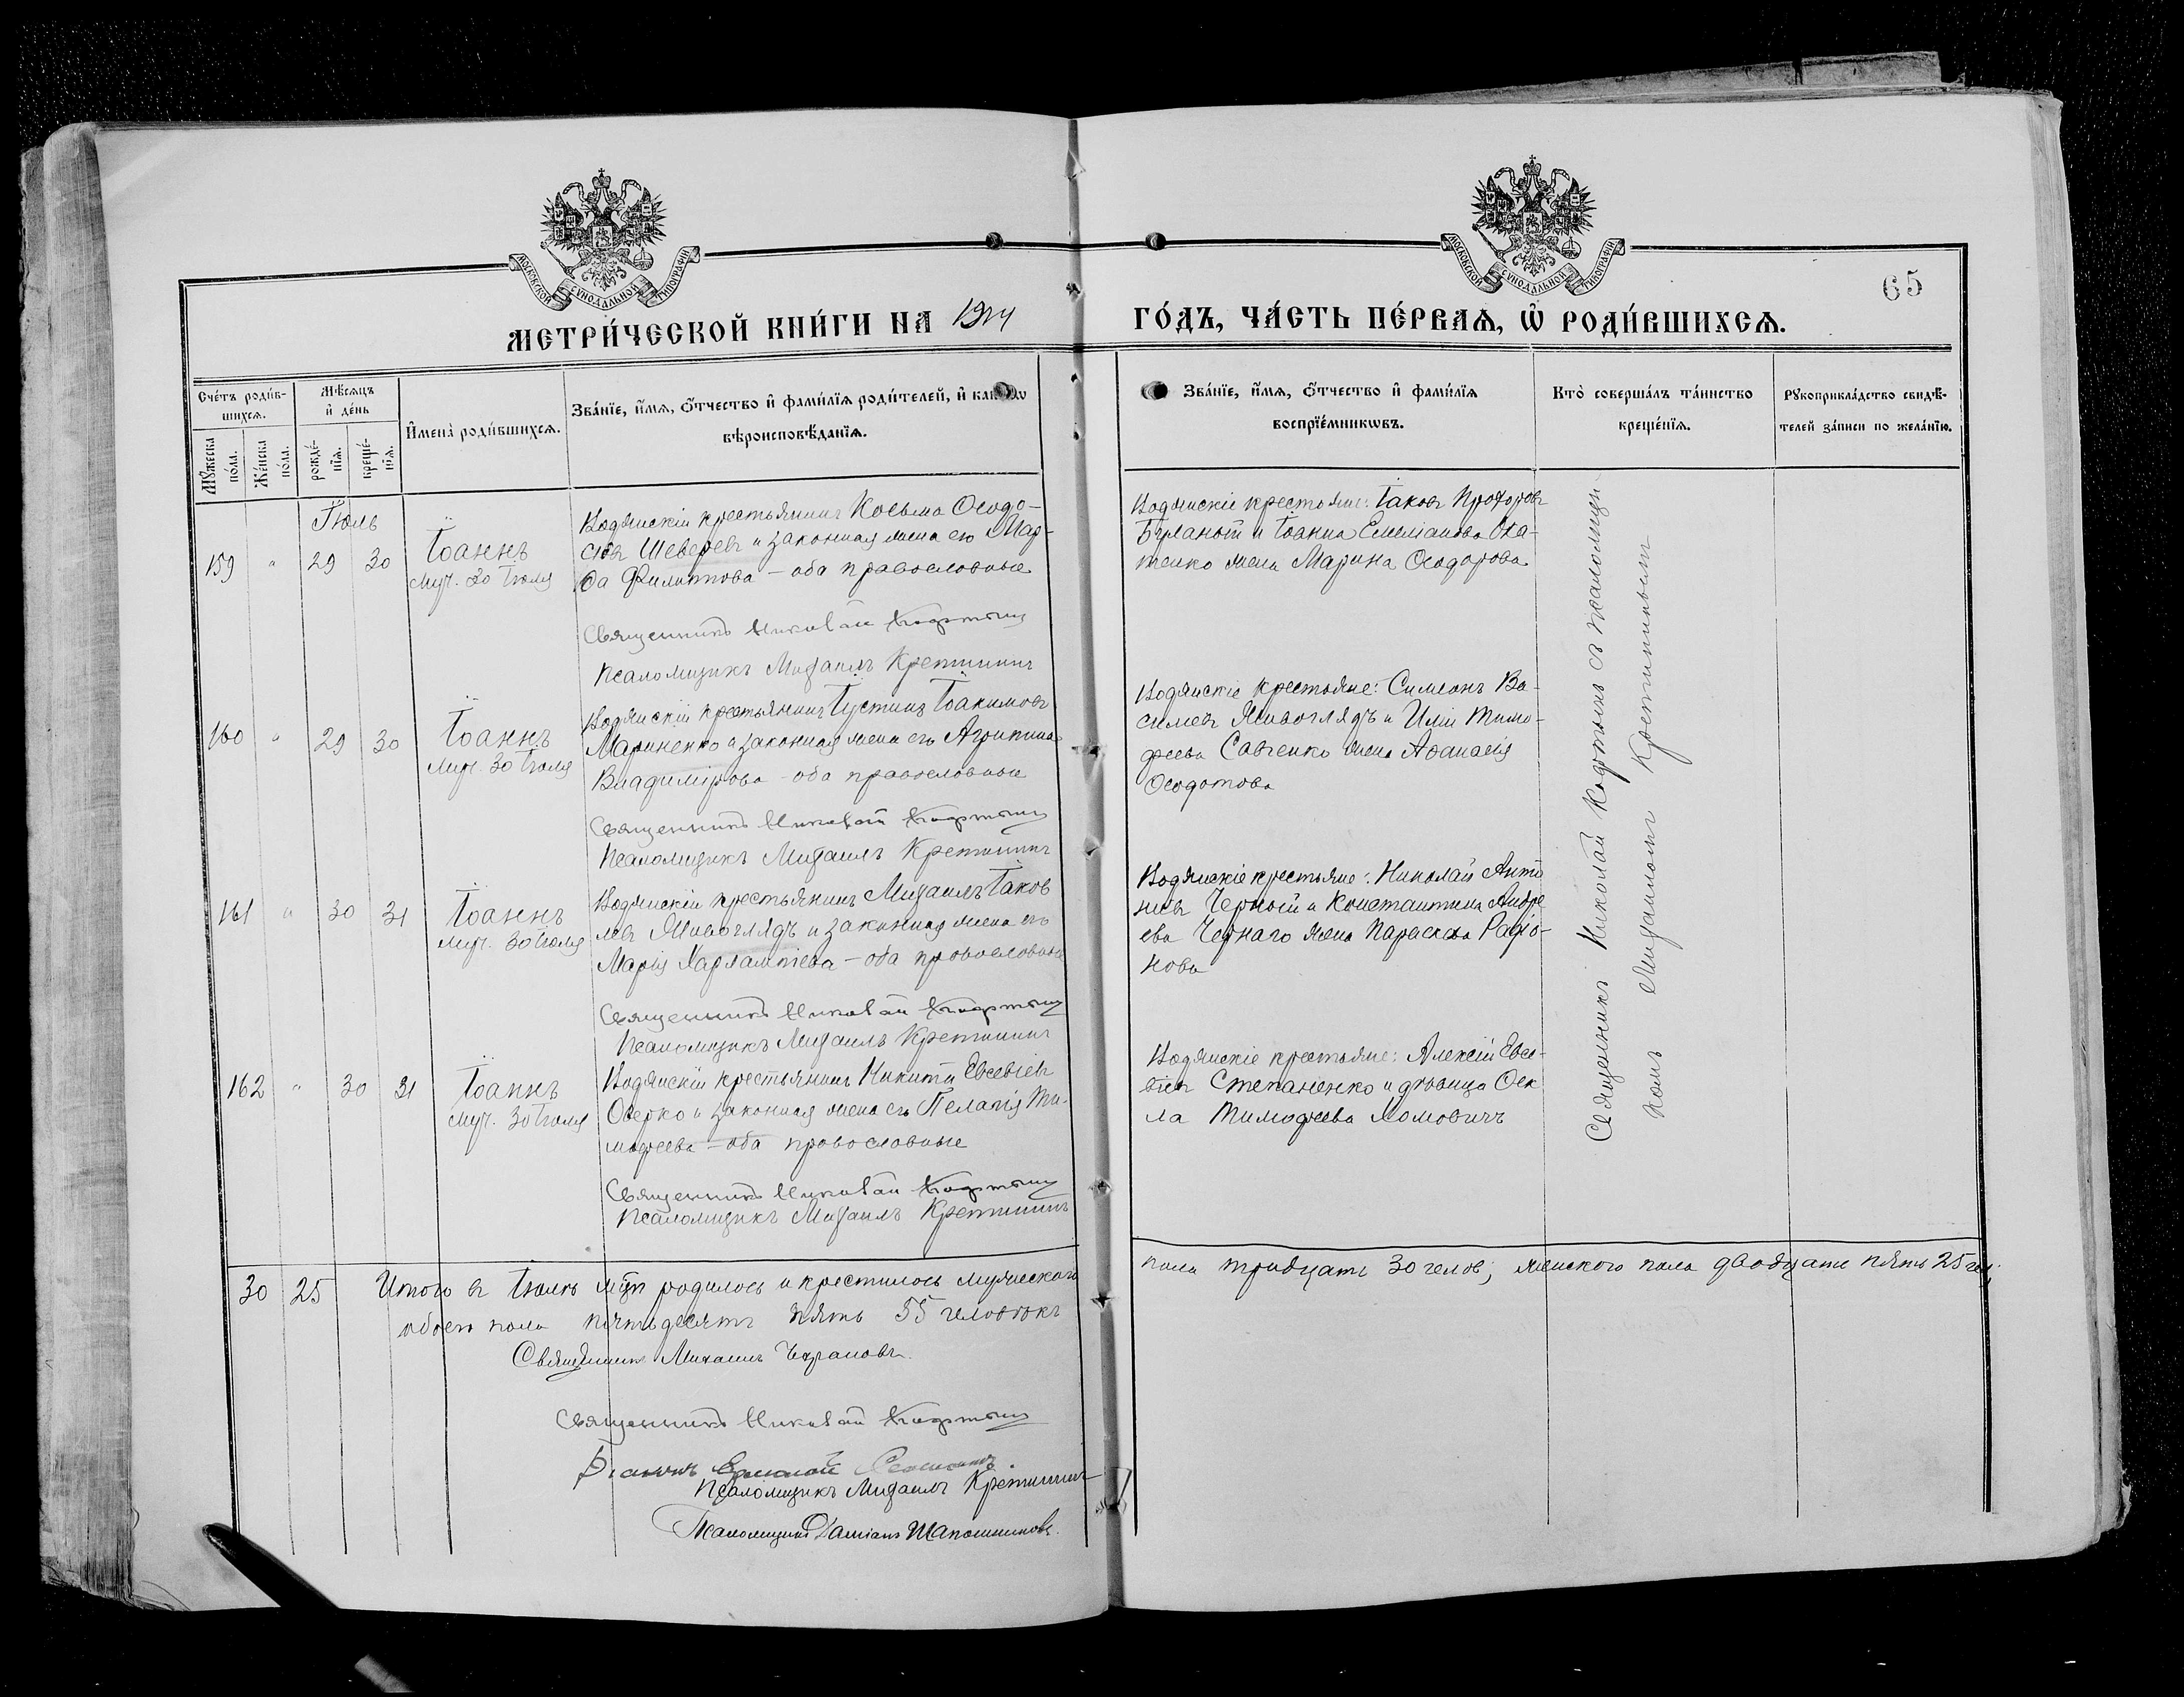 65
МОСКОВСКОЙ СѴНОДАЛЬНОЙ ТИПОГРАФІИ
МОСКОВСКОЙ СѴНОДАЛЬНОЙ ТИПОГРАФІИ
МЕТРИ́ЧЕСКОЙ КНИ́ГИ НА 1914
ГО́ДЪ, ЧА́СТЬ ПЕ́РВАѦ, Ѿ РОДИ́ВШИХСѦ.
Сче́тъ роди́в-
шихсѧ.
Мꙋжеска по́ла.
Же́нска по́ла.
Мѣ́сѧцъ и де́нь
рожде́-
нїѧ.
креще́-
нїѧ.
Имена̀ роди́вшихсѧ.
Зва́нїе, и́мѧ, о́тчество и фами́лїѧ роди́телей, и
вѣроисповѣ́данїѧ.
Зва́нїе, и́мѧ, о́тчество и фами́лїѧ
воспрїе́мникѡвъ.
Кто̀ соверша́лъ та́инство
креще́нїѧ.
Рꙋкоприкла́дство свидѣ́-
телей за́писи по жела́нїю.
Іюль
159 " 29 30
Іоаннъ
муч. 30 Іюля
Водянскій крестьянинъ Косьма Ѳеодо-
сіевъ Шеверевъ и законная жена его Мар-
ѳа Филиппова – оба православные
Священникъ Николай
Псаломщикъ Михаилъ Кретининъ
Водянскіе крестьяне: Іаковъ Прохоровъ
Буланый и Іоанна Емеліанова
жена Марина Ѳеодорова
160 " 29 30
Іоаннъ
муч. 30 Іюля
Водянскій крестьянинъ Іустинъ Іоакимовъ
Мариненко и законная жена его Агрипина
Владимірова – оба православные
Священникъ Николай
Псаломщикъ Михаилъ Кретининъ
Водянскіе крестьяне: Симеонъ Ва-
сильевъ Живоглядъ и Иліи Тимо-
феева Савченко жена Аѳанасія
Ѳеодотова
161 " 30 31
Іоаннъ
муч. 30 Іюля
Водянскій крестьянинъ Михаилъ Іаков
левъ Живоглядъ и законная жена его
Марія Харлампіева – оба православные
Священникъ Николай
Псаломщикъ Михаилъ Кретининъ
Водянскіе крестьяне: Николай Анто
ніевъ Черный и Константина Андре
ева Чернаго жена Параскева Радіо-
нова
162 " 30 31
Іоаннъ
муч. 30 Іюля
Водянскій крестьянинъ Никита Евсевіевъ
и законная жена его Пелагія Ти-
мофеева – оба православные
Священникъ Николай
Псаломщикъ Михаилъ Кретининъ
Водянскіе крестьяне: Алексій Евсе-
віевъ Степаненко и дѣвица Ѳек
ла Тимофеева Хомовичъ
Священникъ Николай съ псаломщи-
комъ Михаиломъ Кретининымъ
30 25 Итого въ Іюлѣ м-цѣ родилось и крестилось мужескаго
пола тридцать 30 челов; женскаго пола двадцать пять 25 чел;
обоего пола пятьдесятъ пять 55 человѣкъ
Священникъ Михаилъ
Священникъ Николай
Псаломщикъ Михаилъ Кретининъ
Псаломщикъ Даміанъ Шапошниковъ.